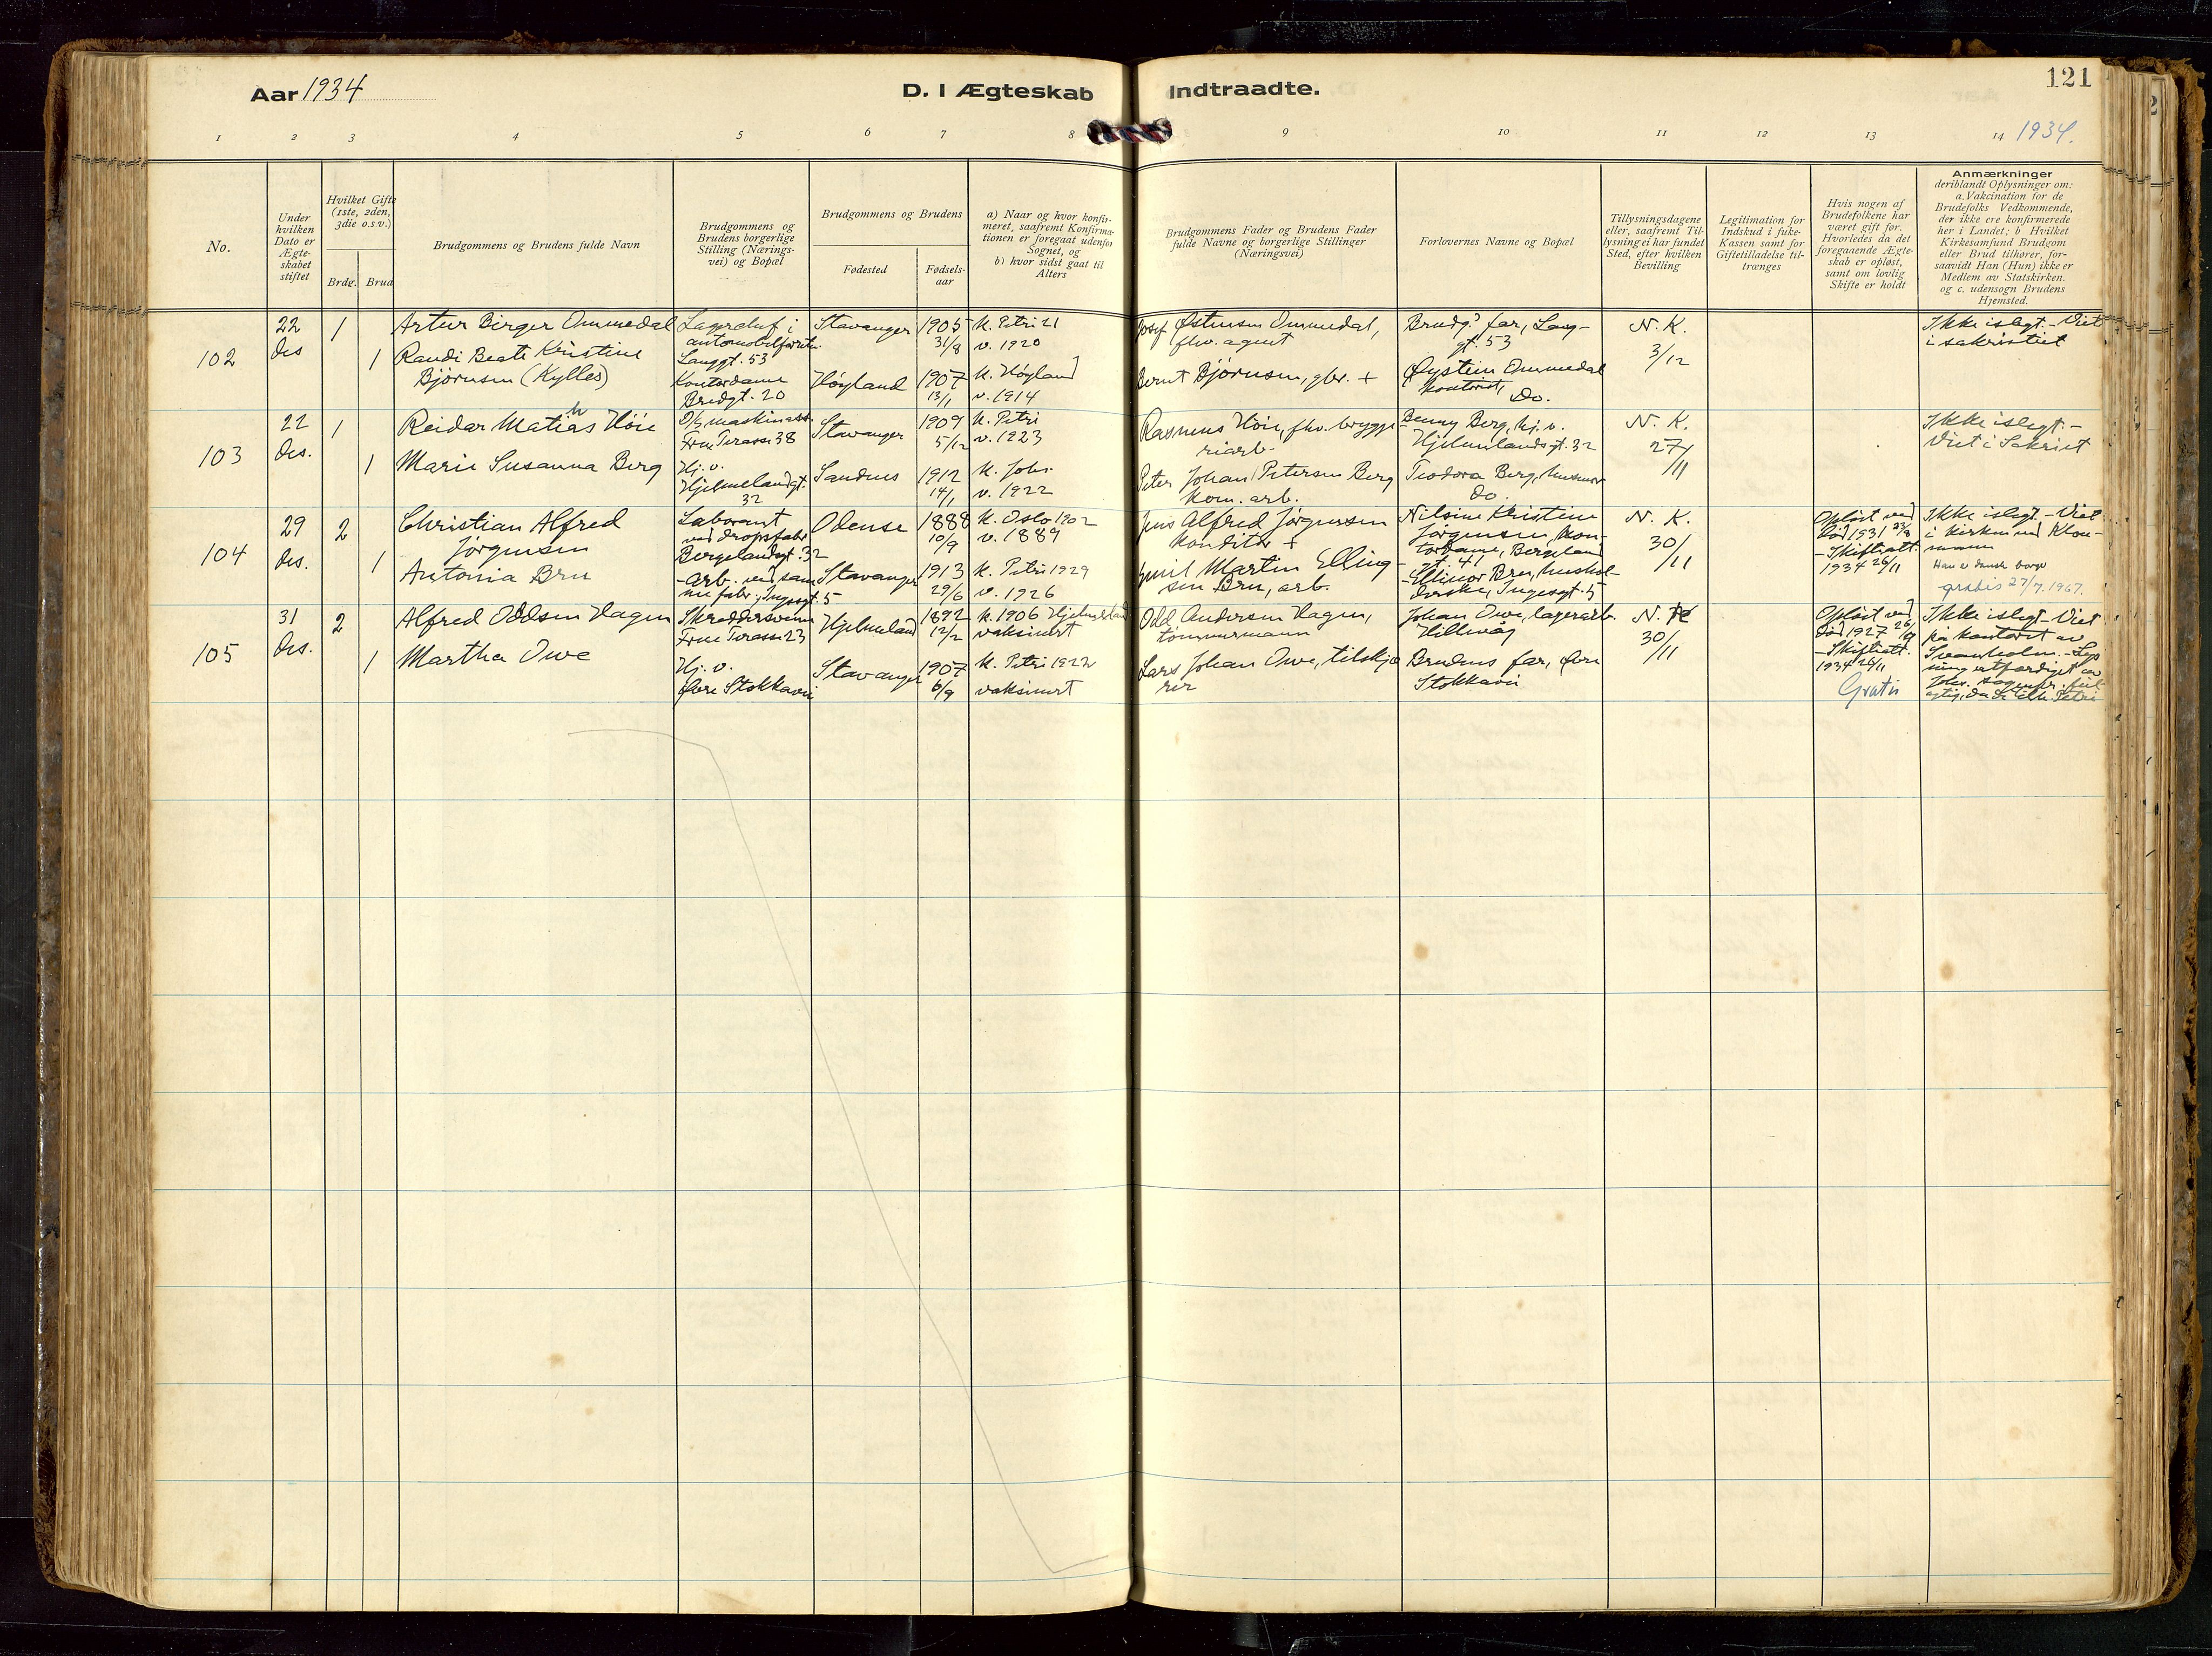 Aar 1934
D. I Ægteskab Indtraadte.
121
1 2 3 4 5 6 7 8 9 10 11 12 13 14 1934.
No.
Under
hvilken
Dato er
Ægte-
skabet
stiftet
Hvilket Gifte
(1ste, 2den,
3die o.s.v.)
Brdg. Brud
Brudgommens og Brudens fulde Navn
Brudgommens og
Brudens borgerlige
Stilling (Nærings-
vei) og Bopæl
Brudgommens og Brudens
Fødested
Fødsels-
aar
a) Naar og hvor konfir-
meret, saafremt Konfirma-
tionen er foregaat udenfor
Sognet, og
b) hvor sidst gaat til
Alters
Brudgommens Fader og Brudens Fader
fulde Navne og borgerlige Stillinger
(Næringsvei)
Forlovernes Navne og Bopæl
Tillysningsdagene
eller, saafremt Til-
lysning ei har fundet
Sted, efter hvilken
Bevilling
Legitimation for
Indskud i Enke-
Kassen samt for
Giftetilladelse til-
trænges
Hvis nogen af
Brudefolkene har
været gift før.
Hvorledes da det
foregaaende Ægte-
skab er opløst,
samt om lovlig
Skifte er holdt
Anmærkninger
deriblandt Oplysninger om:
a. Vakcination for de
Brudefolks Vedkommende,
der ikke ere konfirmerede
her i Landet; b Hvilket
Kirkesamfund Brudgom
eller Brud tilhører, for-
saavidt Han (Hun) ikke er
Medlem av Statskirken.
og c. udensogn Brudens
Hjemsted.
102
22
des
1
1
Artur Birger Ommedal
Randi Beate Kristine
Bjørnsen (Kylles)
Lagerchef i
automobilforretn.
Langgt. 53
Kontordame
Bredgt. 20
Stavanger
Høyland
1905
31/8
1907
13/1
k. Petri 21
v. 1920
k. Høyland
v. 1914
Josef Østensen Ommedal,
fhv. agent
Bernt Bjørnsen, gbr. +
Brudg.s far, Lang-
gt. 53
Øystein Ommedal
kontorist,
Do.
N. K.
3/12
Ikke i slegt. - Viet
i sakristiet
103
22
des.
1
1
Reidar Mathias Höie
Marie Susanna Berg
D/s maskinass.
Frue Terasse 38
Hj. v.
Hjelmelandgt.
32
Stavanger
Sandnes
1909
5/12
1912
14/1
k. Petri
v. 1923
k. Joh.
v. 1922
Rasmus Höie, fhv. brygge
riarb.
Peter Johan Petersen Berg
kom. arb.
Benny Berg, hj. v.
Hjelmelandsgt. 32
Teodora Berg, husmor
Do.
N. K.
27/11
Ikke i slegt. -
Viet i Sakrist
104
29
des.
2
1
Christian Alfred
Jörgensen
Antonia Bru
Laborant
ved dropsfabr.
Bergelandsgt. 32
- Arb. ved sam
me fabr., Ingesgt. 5
Odense
Stavanger
1888
10/9
1913
29/6
k. Oslo 1902
v. 1889
k. Petri 1929
v. 1926
Jens Alfred Jörgensen
konditor +
Emil Martin Elling-
sen Bru, arb.
Nilsine Kristine
Jörgensen, kon-
tordame, Bergeland
gt. 41
- Ellinor Bru, hushol-
derske, Ingesgt. 5
N. K.
30/11
Opløst ved
død 1931 23/8
- Skifteatt.
1934 26/11
Ikke i slegt. - Viet
i kirken ved Klou-
mann
Han er dansk borger
gratis 27/7. 1967.
105
31
des.
2
1
Alfred Oddsen Hagen
Martha Owe
Skreddersvenn
Frue Terasse 23
Hj. v.
Øvre Stokkavei
Hjelmeland
Stavanger
1892
12/2
1907
6/9
k. 1906 Hjelmeland
vaksinert
k. Petri 1922
vaksinert
Odd Andersen Hagen,
tømmermann
Lars Johan Owe, tilskjæ
rer
Johan Owe, lagerarb.
Hillevåg
Brudens far, Øvre
Stokkavei
N. K.
30/11
Opløst ved
død 1927 26/9
- Skifteatt.
1934 26/11
Gratis
Ikke i slegt - Viet
på kontoret av
Svanholm. - Lys
ning utferdiget av
Joh. sognepr. feil-
agtig, da de tilh. Petri